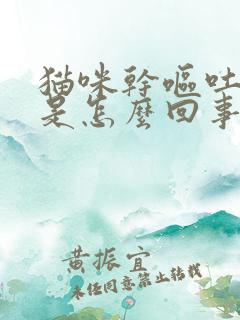 猫咪幹嘔吐
是怎麼回事
黃振宜
未经同意禁止转载